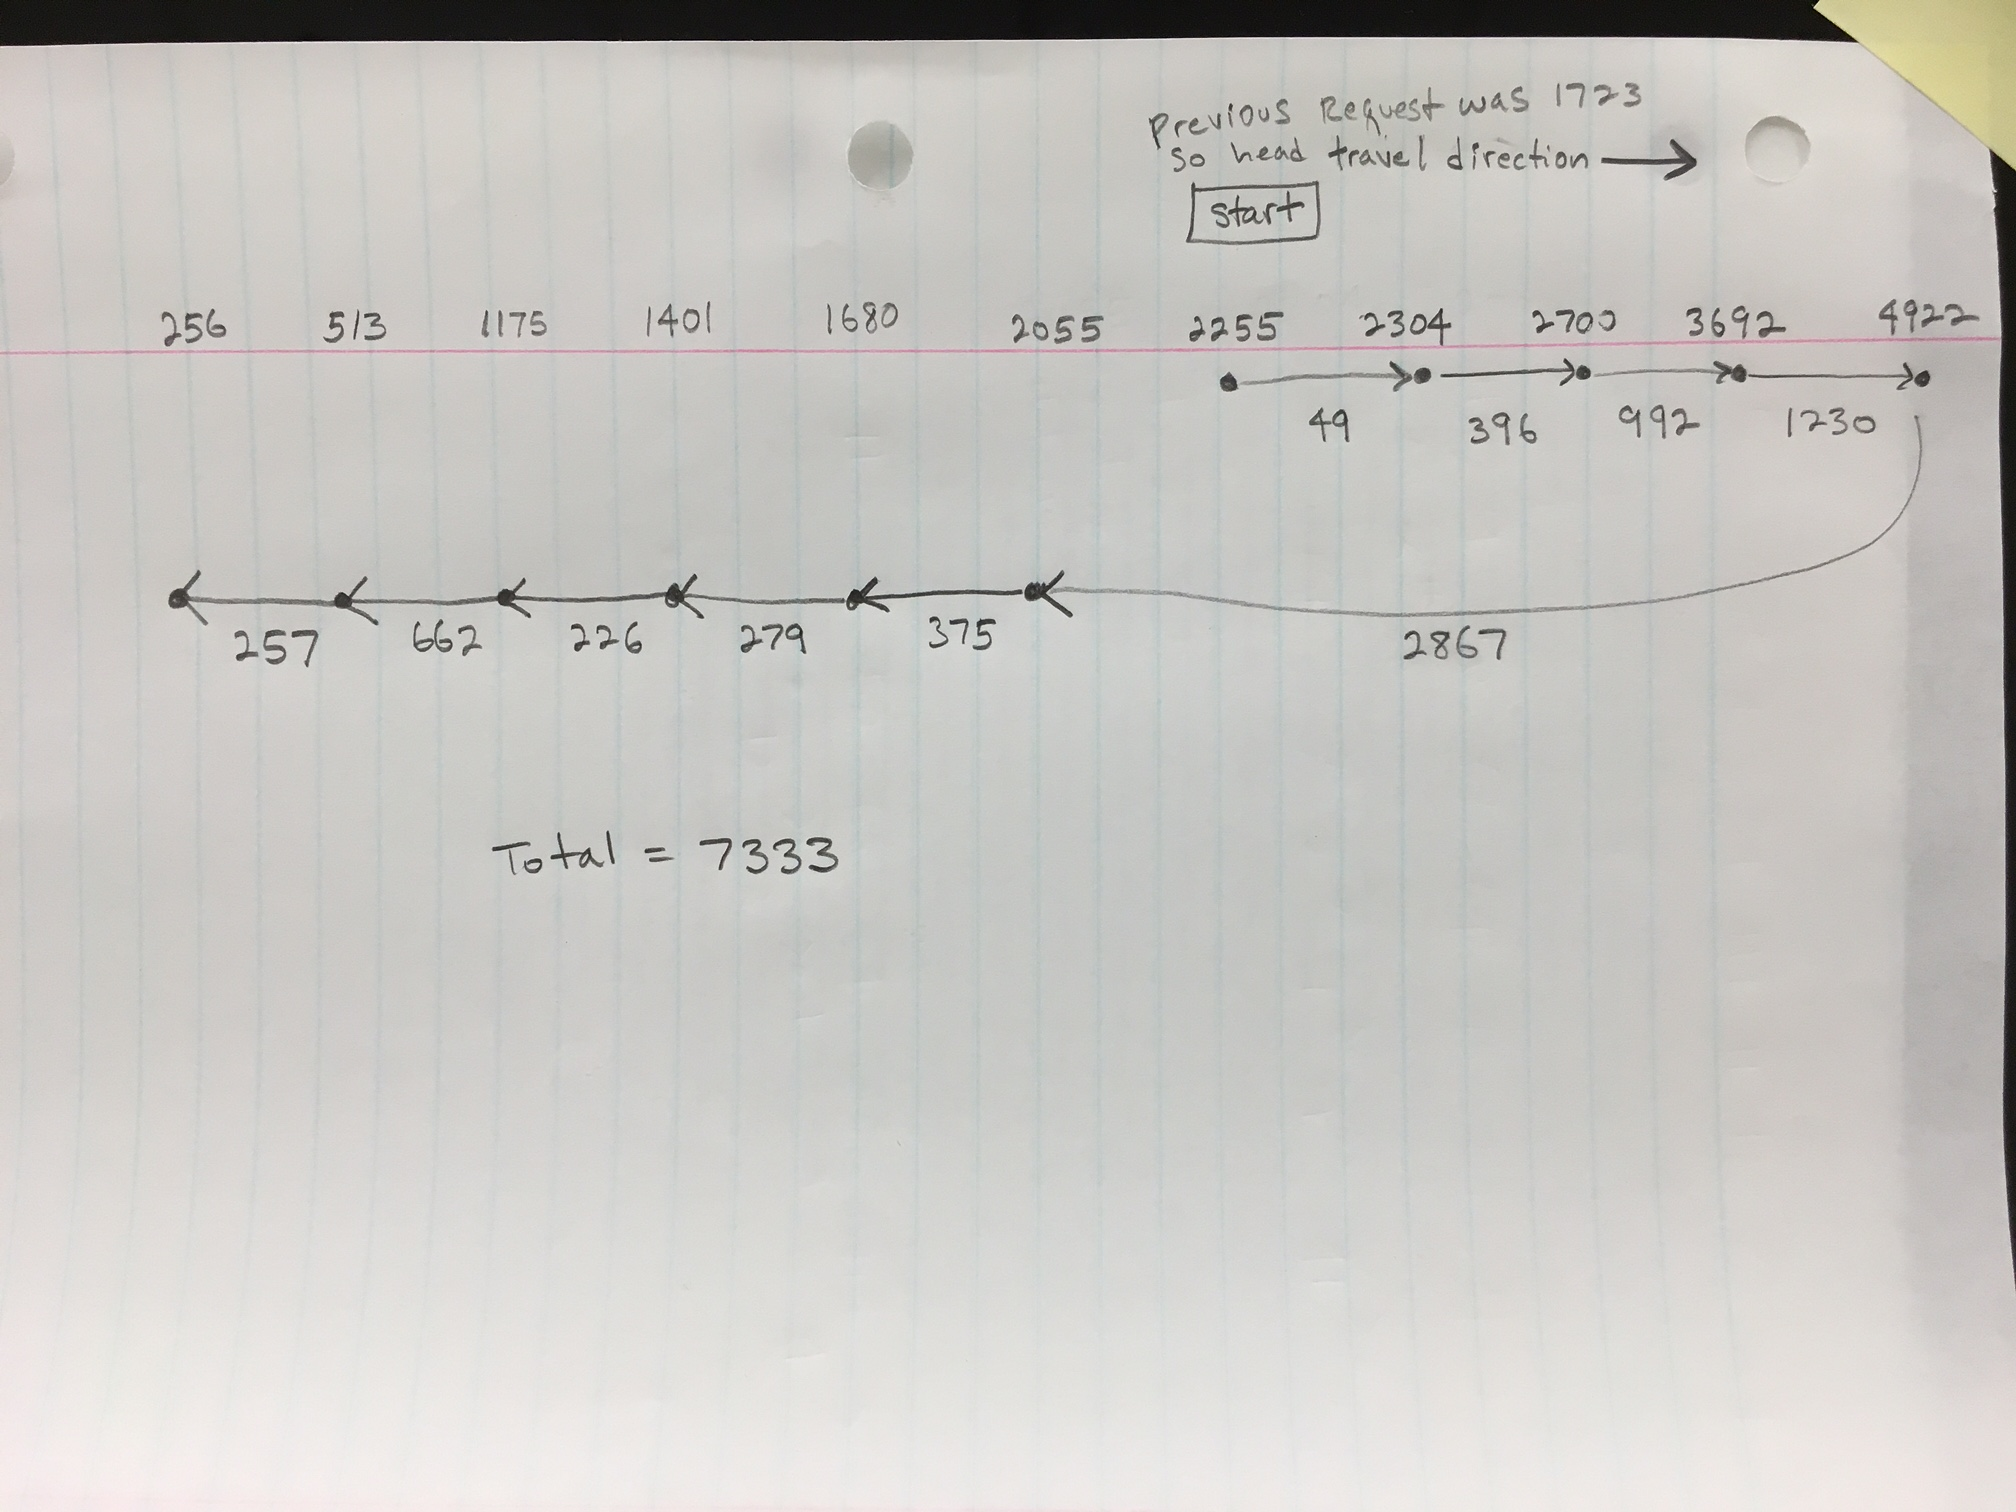 Previous Request was 1723
so head travel direction
start
256 513 1175 1401 1680 2055 2255 2304 2700 3692 4922
49 396 992 1230
257 662 226 279 375 2867
Total = 7333